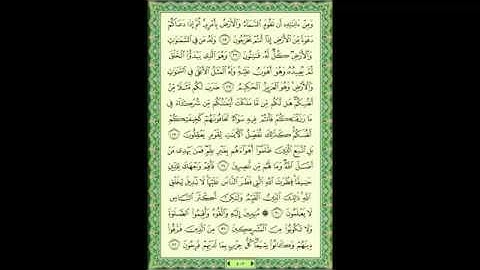 وَمِنْ ءَايَٰتِهِۦٓ أَن تَقُومَ ٱلسَّمَآءُ وَٱلْأَرْضُ بِأَمْرِهِۦ ثُمَّ إِذَا دَعَاكُمْ
دَعْوَةً مِّنَ ٱلْأَرْضِ إِذَآ أَنتُمْ تَخْرُجُونَ ﴿٢٥﴾ وَلَهُۥ مَن فِى ٱلسَّمَٰوَٰتِ
وَٱلْأَرْضِ كُلٌّ لَّهُۥ قَٰنِتُونَ ﴿٢٦﴾ وَهُوَ ٱلَّذِى يَبْدَؤُا۟ ٱلْخَلْقَ
ثُمَّ يُعِيدُهُۥ وَهُوَ أَهْوَنُ عَلَيْهِ وَلَهُ ٱلْمَثَلُ ٱلْأَعْلَىٰ فِى ٱلسَّمَٰوَٰتِ
وَٱلْأَرْضِ وَهُوَ ٱلْعَزِيزُ ٱلْحَكِيمُ ﴿٢٧﴾ ضَرَبَ لَكُم مَّثَلًا مِّنْ
أَنفُسِكُمْ هَل لَّكُم مِّن مَّا مَلَكَتْ أَيْمَٰنُكُم مِّن شُرَكَآءَ فِى
مَا رَزَقْنَٰكُمْ فَأَنتُمْ فِيهِ سَوَآءٌ تَخَافُونَهُمْ كَخِيفَتِكُمْ
أَنفُسَكُمْ كَذَٰلِكَ نُفَصِّلُ ٱلْءَايَٰتِ لِقَوْمٍ يَعْقِلُونَ ﴿٢٨﴾
بَلِ ٱتَّبَعَ ٱلَّذِينَ ظَلَمُوٓا۟ أَهْوَآءَهُم بِغَيْرِ عِلْمٍ فَمَن يَهْدِى مَنْ
أَضَلَّ ٱللَّهُ وَمَا لَهُم مِّن نَّٰصِرِينَ ﴿٢٩﴾ فَأَقِمْ وَجْهَكَ لِلدِّينِ
حَنِيفًا فِطْرَتَ ٱللَّهِ ٱلَّتِى فَطَرَ ٱلنَّاسَ عَلَيْهَا لَا تَبْدِيلَ لِخَلْقِ
ٱللَّهِ ذَٰلِكَ ٱلدِّينُ ٱلْقَيِّمُ وَلَٰكِنَّ أَكْثَرَ ٱلنَّاسِ
لَا يَعْلَمُونَ ﴿٣٠﴾ ۞ مُنِيبِينَ إِلَيْهِ وَٱتَّقُوهُ وَأَقِيمُوا۟ ٱلصَّلَوٰةَ
وَلَا تَكُونُوا۟ مِنَ ٱلْمُشْرِكِينَ ﴿٣١﴾ مِنَ ٱلَّذِينَ فَرَّقُوا۟
دِينَهُمْ وَكَانُوا۟ شِيَعًا كُلُّ حِزْبٍۭ بِمَا لَدَيْهِمْ فَرِحُونَ ﴿٣٢﴾